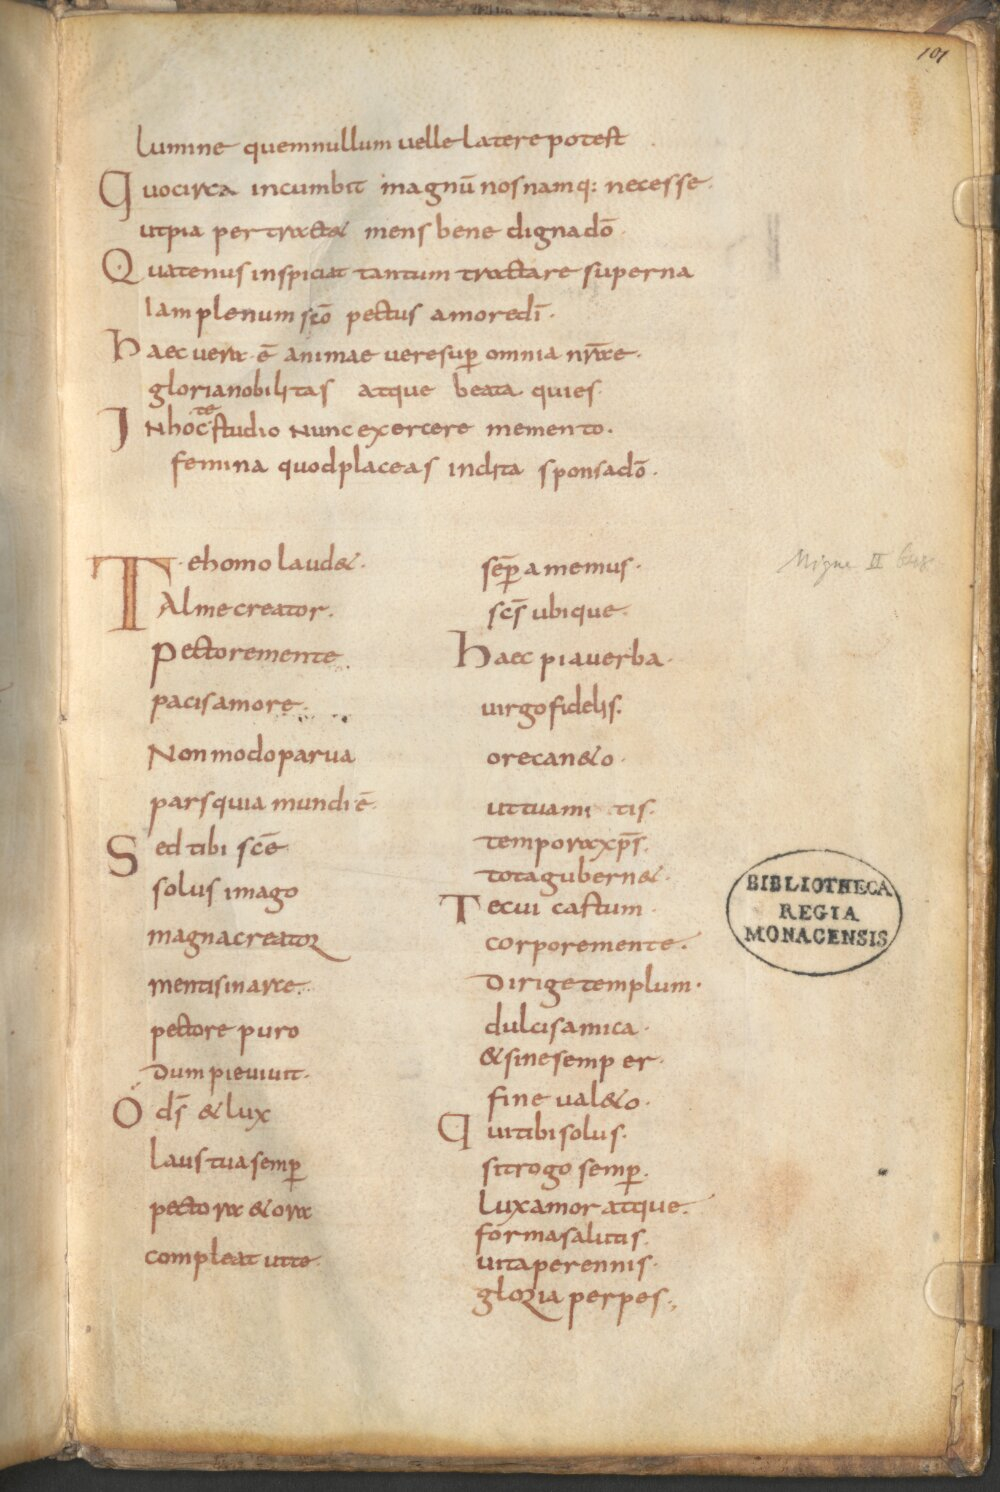 101
lumine quemnullum uelle latere potest
Quocirca incumbit magnū nos namq: necesse.
utpia pertractet mens bene dignadō.
Quatenus inspiciat tantum tractare superna
Iam plenum scō pectus amoredī.
Haec uera ē animae uere sup̄ omnia nr̄ae.
glorianobilitas atque beata quies.
INhoc te studio Nunc exercere memento.
femina quodplaceas inclita sponsadō.
Te homo laudet.
Alme creator.
Pectoremente
pacisamore.
Nonmodoparua
parsquia mundi ē.
Sed tibi scē
solus imago
magnacreator
mentisinarce.
pectore puro
Dum pieuiuit.
O ds̄ & lux
laus tua semp̄
pectora & ora
compleat utte.
sēp amemus.
scs̄ ubique.
Haec piauerba.
uirgofidelis.
orecaneto.
uttuami tis.
temporaxp̄s.
totagubernet.
Tecui castum.
corporemente.
Dirigetemplum.
dulcisamica.
&sinesemper.
fine ualeto.
Quitibisolus.
sitrogo semp̄.
Luxamor atque.
formasalutis.
uitaperennis.
gloria perpes.,
Migne II 648
BIBLIOTHECA
REGIA
MONACENSIS